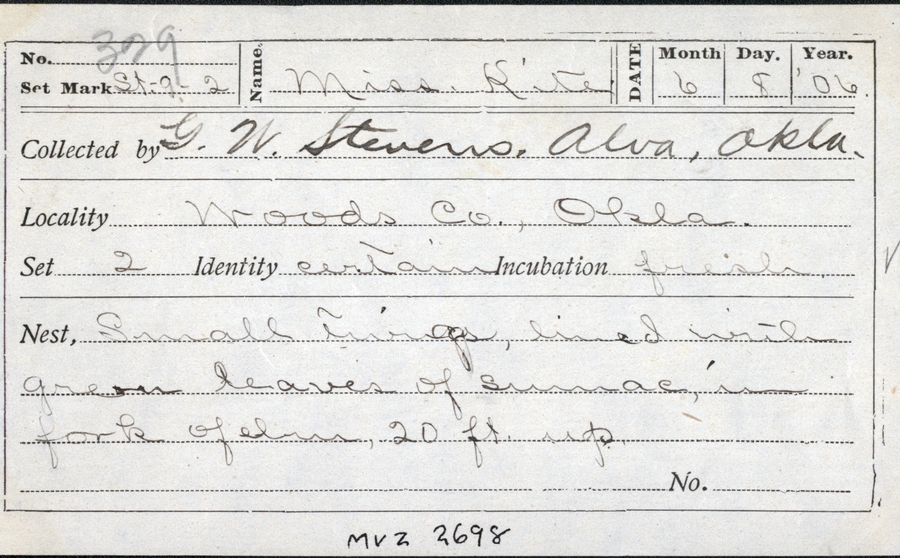 No. 329
Set Mark St-9-2 Name. Miss. Kite DATE Month 6 Day. 8 Year. '06.
Collected by G. W. Stevens. Alva, Okla.
Locality Woods Co., Okla.
Set 2 Identity certain Incubation fresh.
Nest, Small twigs, lined with
green leaves of sumac, in
fork of elm, 20 ft. up.
No.
MVZ 2698